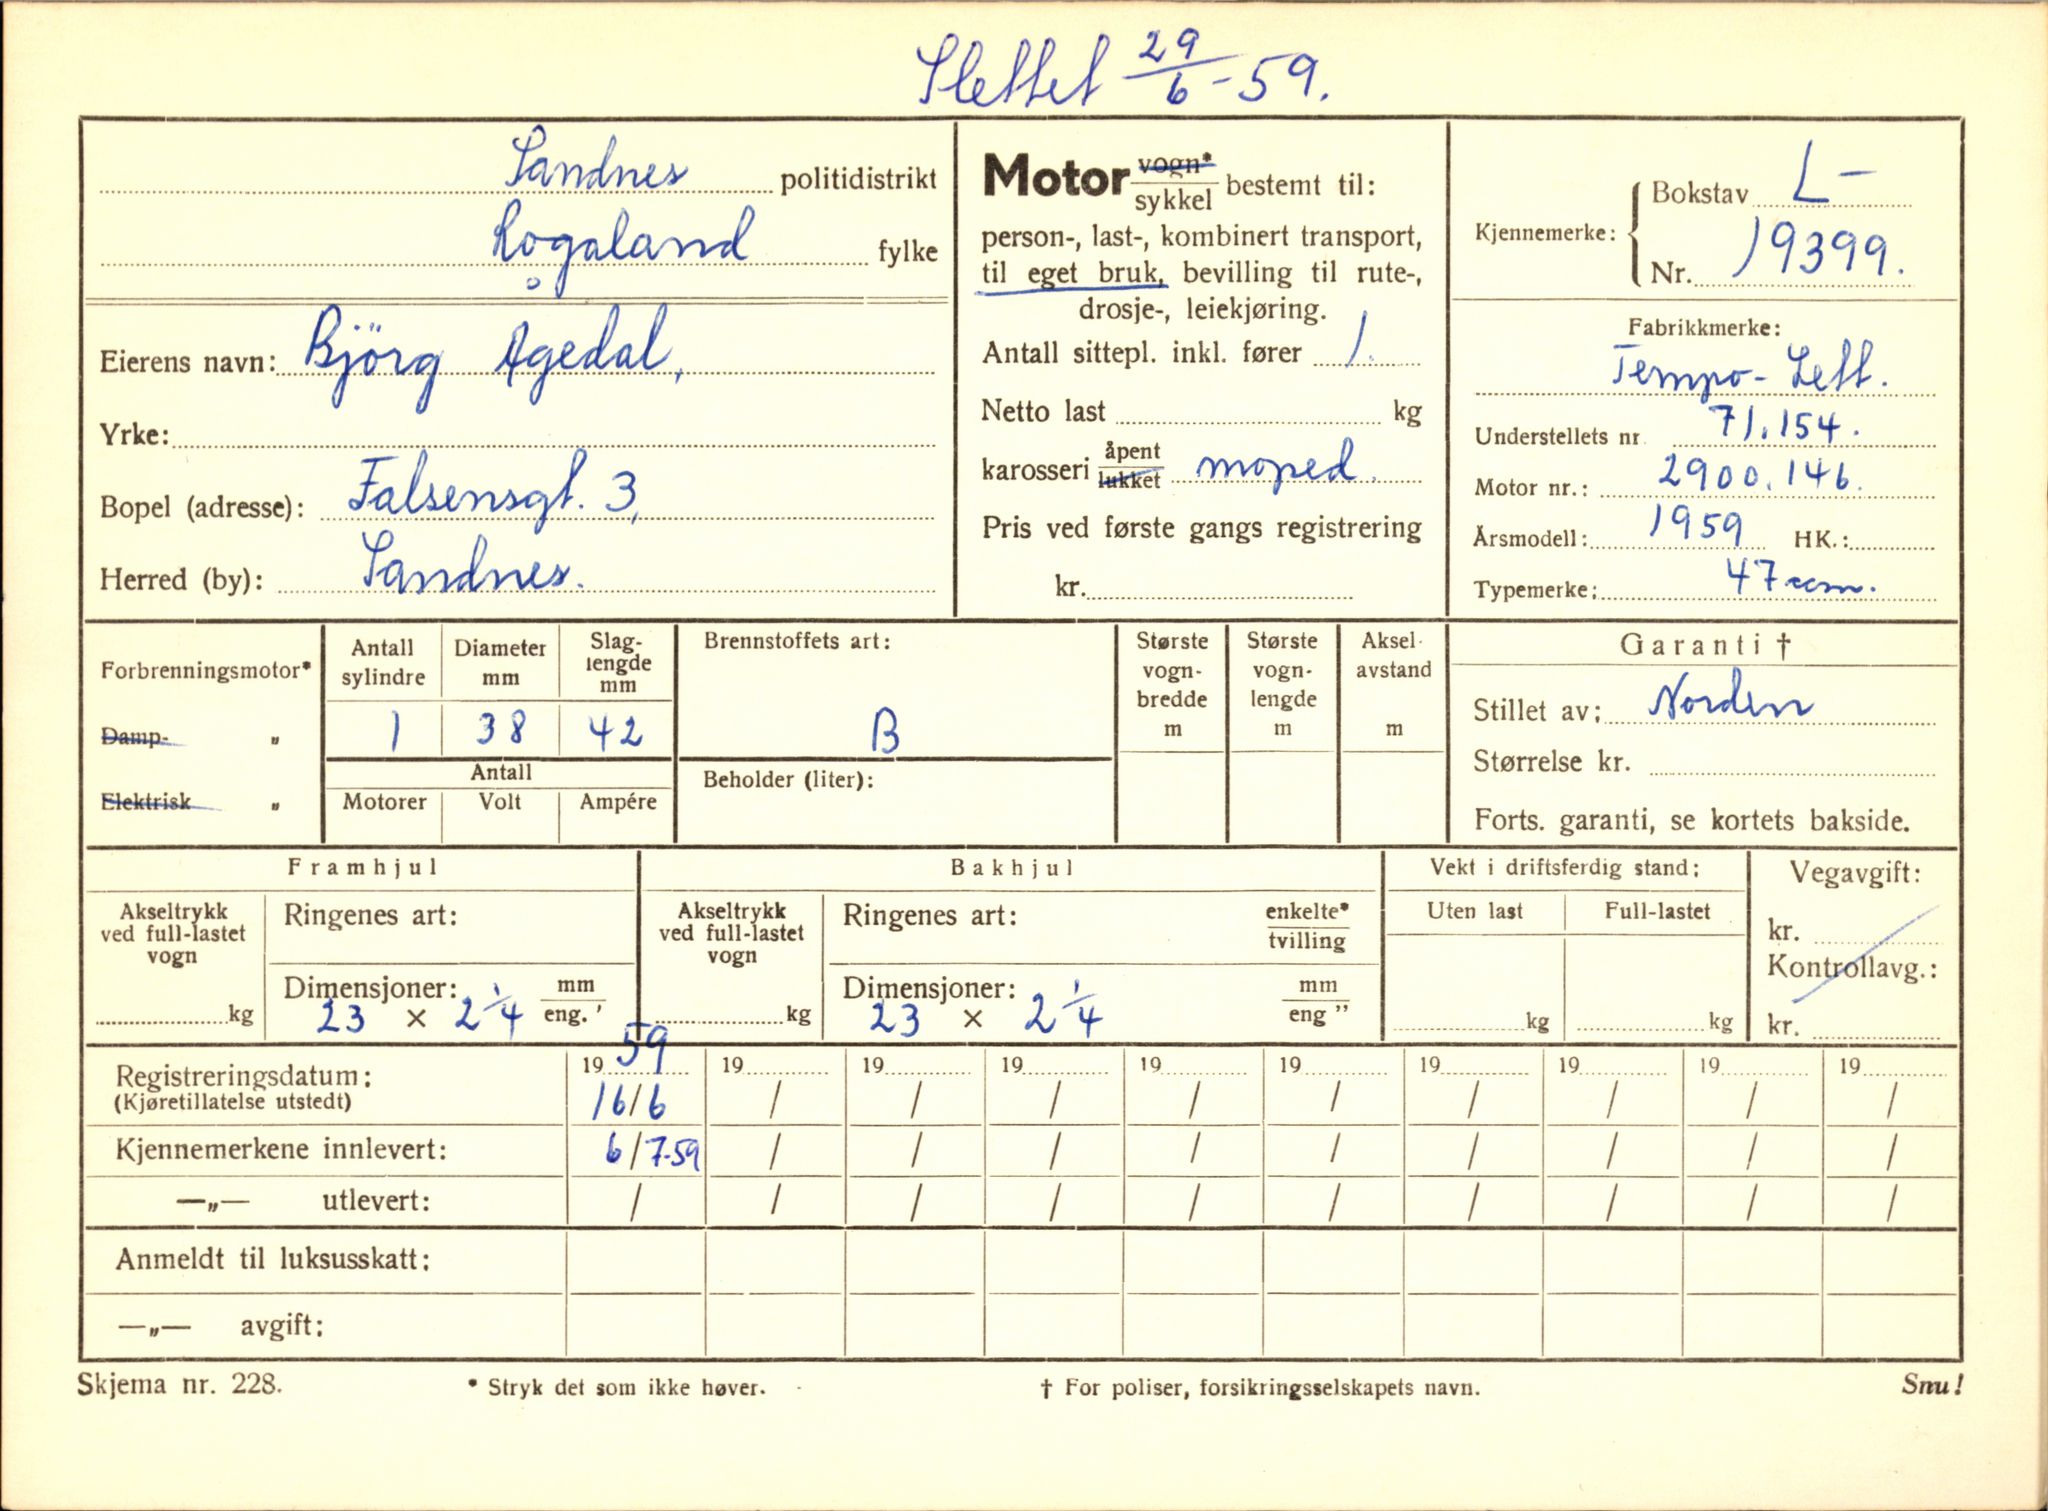 Slettet 29/6-59.
Sandnes politidistrikt
Rogaland fylke
Eierens navn: Björg Ågedal,
Yrke:
Bopel (adresse): Falsensgt. 3,
Herred (by): Sandnes.
Motor vogn*/sykkel bestemt til:
person-, last-, kombinert transport,
til eget bruk, bevilling til rute-,
drosje-, leiekjøring.
Antall sittepl. inkl. fører 1.
Netto last kg
karosseri åpent/lukket moped.
Pris ved første gangs registrering
kr.
Kjennemerke: Bokstav L-
Nr. 19399.
Fabrikkmerke:
Tempo-Lett.
Understellets nr 71.154.
Motor nr.: 2900.146.
Årsmodell: 1959 HK.:
Typemerke: 47 ccm.
Forbrenningsmotor*
Damp- „
Elektrisk „
Antall sylindre
Diameter mm
Slag-lengde mm
1 38 42
Antall
Motorer Volt Ampére
Brennstoffets art:
B
Beholder (liter):
Største vogn-bredde m
Største vogn-lengde m
Aksel-avstand m
Garanti †
Stillet av: Norden
Størrelse kr.
Forts. garanti, se kortets bakside.
Framhjul
Akseltrykk ved full-lastet vogn
kg
Ringenes art:
Dimensjoner: mm/eng. '
23 × 2 1/4
Bakhjul
Akseltrykk ved full-lastet vogn
kg
Ringenes art: enkelte*/tvilling
Dimensjoner: mm/eng ''
23 × 2 1/4
Vekt i driftsferdig stand:
Uten last Full-lastet
kg kg
Vegavgift:
kr.
Kontrollavg.:
kr.
Registreringsdatum: 1959 19 19 19 19 19 19 19 19 19
(Kjøretillatelse utstedt) 16/6 / / / / / / / / /
Kjennemerkene innlevert: 6/7-59 / / / / / / / / /
—„— utlevert: / / / / / / / / / /
Anmeldt til luksusskatt:
—„— avgift:
Skjema nr. 228. * Stryk det som ikke høver. † For poliser, forsikringsselskapets navn. Snu!